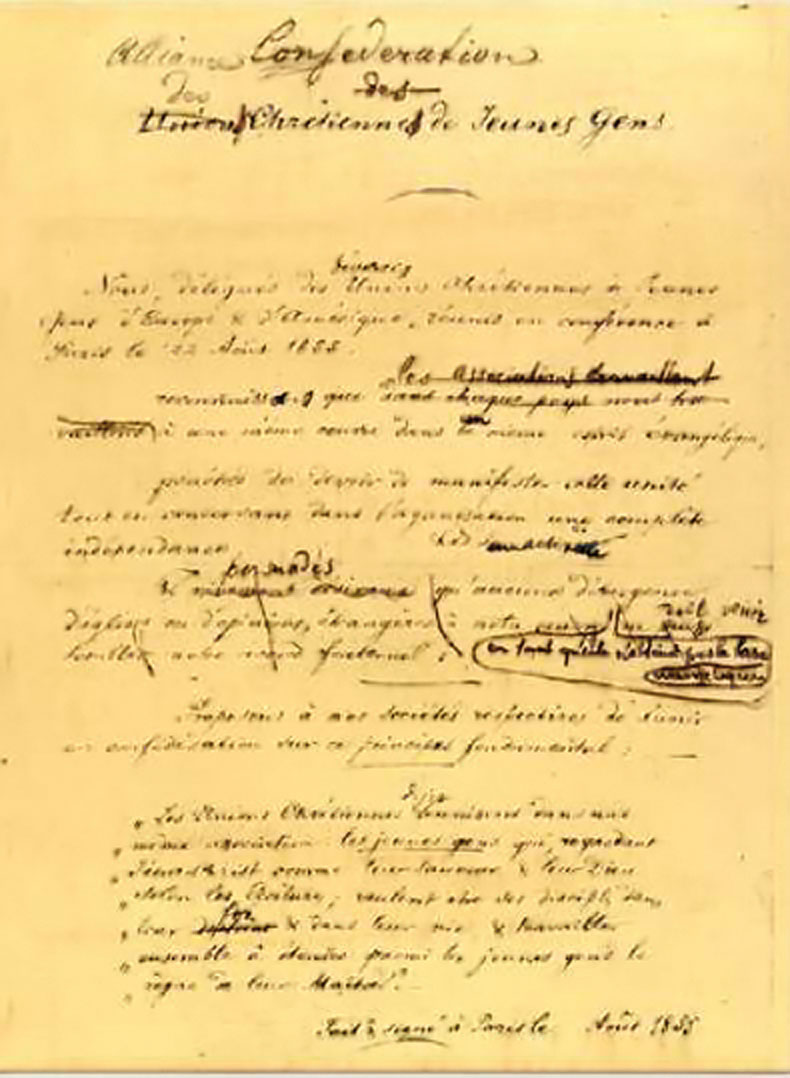 Alliance Confederation
des des
Unions Chrétiennes de Jeunes Gens
diverses
Nous, délégués des Unions Chrétiennes de Jeunes
Gens d'Europe & d'Amérique, réunis en conférence à
Paris le 22 Août 1855.
les associations travaillant
reconnaissons que dans chaque pays nous tra-
vaillons à une même oeuvre dans le même esprit évangélique,
pénétrés du devoir de manifester cette unité
tout en conservant dans l'organisation une complète
indépendance
persuadés
& qu'aucune divergence
d'églises ou d'opinions, étrangères à notre
venir
troubler notre accord fraternel ;
en tant qu'elle
Proposons à nos sociétés respectives de s'unir
en confédération sur ce principe fondamental :
„ Les Unions Chrétiennes réunissent dans une
„ même association les jeunes gens qui, regardant
„ Jésus-Christ comme leur Sauveur & leur Dieu
„ selon les Ecritures, veulent être ses disciples dans
foi
„ leur & dans leur vie & travailler
„ ensemble à étendre parmi les jeunes gens le
„ règne de leur Maître".
Fait & signé à Paris le Août 1855